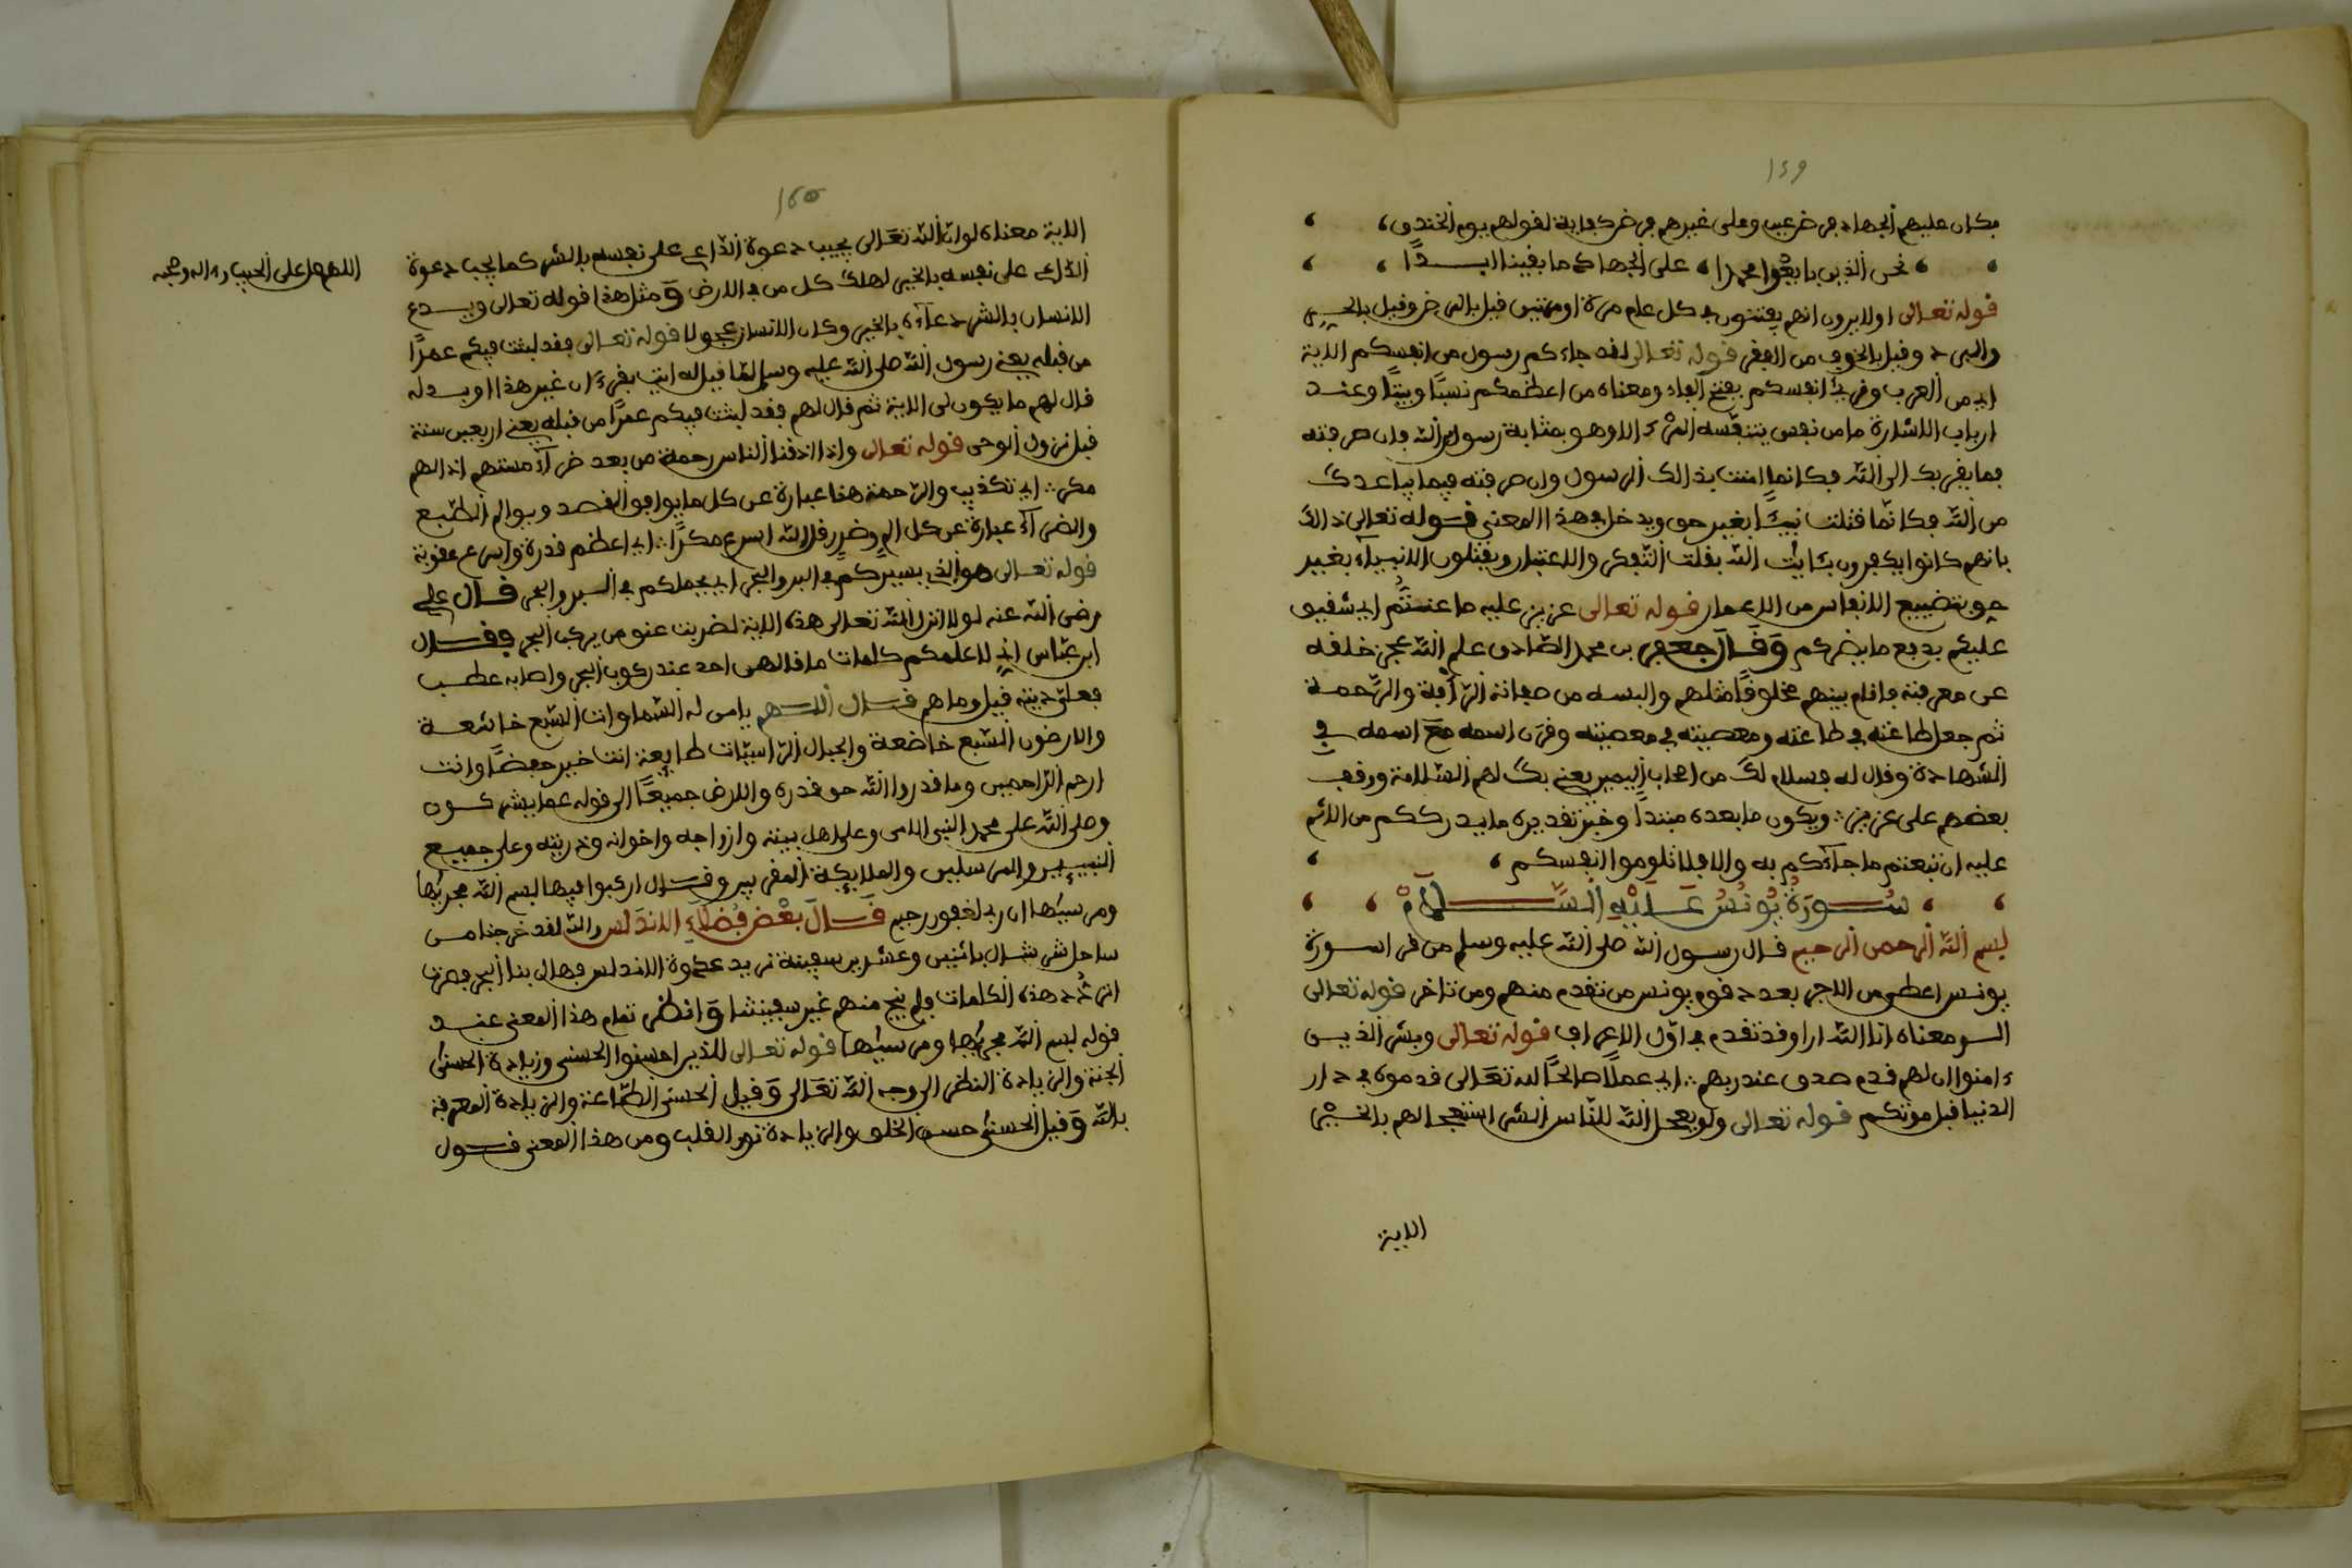 ١٤٩
فكان عليهم الجهاد فرض عين وعلى غيرهم فرض كفاية لقولهم يوم الخندق
نحن الذين بايعوا محمدا على الجهاد ما بقينا ابـــدًا
قوله تعالى اولا يرون انهم يفتنون في كل عام مرة او مرتين قيل بالمرض وقيل بالحـر
والبرد وقيل بالخوف من الفقر قوله تعالى لقد جاءكم رسول من انفسكم الاية
اي من العرب وقرئ انفسكم بفتح الفاء ومعناه من اعظمكم نسبًا وبيتًا وعنـد
ارباب الاشارة ما من نفس يتنفسه المرء الا وهو بمثابة رسول الله فان صرفته
فيما يقربك الى الله فكانما امنت بذالك الرسول وان صرفته فيما يباعدك
من الله فكانما قتلت نبيًا بغير حق ويدخل في هذا المعنى قوله تعالى ذالك
بانهم كانوا يكفرون بئايت الله بقلت التفكر والاعتبار ويقتلون الانبياء بغير
حق بتضييع الانفاس من الاعمار قوله تعالى عزيز عليه ما عنتم اي شفيق
عليكم يدفع ما يضركم وَقَالَ جعفر بن محمد الصادق علم الله عجز خلقه
عن معرفته فاقام بينهم مخلوقًا مثلهم والبسه من صفاته الرأفة والرحمة
ثم جعل طاعته في طاعته ومعصيته في معصيته وقرن اسمه مع اسمه في
الشهادة وقال له فسلام لك من اصحاب اليمين يعني بك لهم السلامة ووقف
بعضهم على عزيز ويكون ما بعده مبتدأ وخبر تقديره ما يدرككم من الاثم
عليه ان تبعتم ما جاءكم به والا فلا تلوموا الا انفسكم
سُـورَةُ يُونُسُ عَـلَيْهِ السَّـــلَامْ
بسم الله الرحمن الرحيم قال رسول الله صلى الله عليه وسلم من قرا سورة
يونس اعطى من الاجر بعدد قوم يونس من تقدم منهم ومن تاخر قوله تعالى
الـر معناه انا الله ارا وقد تقدم في اول الاعراف قوله تعالى وبشر الذيـن
ءامنوا ان لهم قدم صدق عند ربهم اي عملًا صالحًا لله تعالى قدموه في دار
الدنيا قبل موتكم قوله تعالى ولو يعجل الله للناس الشر استعجالهم بالخـير
الاية
الاية معناه لو ان الله تعالى يجيب دعوة الداعي على نفسه بالشر كما يجيب دعوة
الداعي على نفسه بالخير لهلك كل من في الارض وَمثل هذا قوله تعالى ويـدع
الانسان بالشر دعاءه بالخير وكان الانسان عجولا قوله تعالى فقد لبثت فيكم عمرًا
من قبله يعني رسول الله صلى الله عليه وسلم لما قيل له ايت بقرءان غير هذا او بدله
قال لهم ما يكون لي الاية ثم قال لهم فقد لبثت فيكم عمرًا من قبله يعني اربعين سنة
قبل نزول الوحي قوله تعالى واذا اذقنا الناس رحمة من بعد ضراء مستهم اذا لهم
مكر اي تكذيب والرحمة هنا عبارة عن كل ما يوافق القصد ويوالم الطبع
والضراء عبارة عن كل الم وضرر قل الله اسرع مكرًا اي اعظم قدرة واسرع عقوبة
قوله تعالى هو الذي يسيركم في البر والبحر اي يحملكم في السير والبحر قـال علي
رضي الله عنه لولا انزل الله تعالى هذه الاية لضربت عنق من يركب البحر وقـال
ابن عباس اني لاعلمكم كلمات ما قالهن احد عند ركوب البحر واصابه عطـب
فعلي ديته قيل وما هم قـال اللـهم يا من له السماوات السبع خاشعـة
والارضون السبع خاضعة والجبال الراسيات طايعة انت خير حفظا وانت
ارحم الراحمين وما قدروا الله حق قدره والارض جميعًا الى قوله عما يشركـون
وصلى الله على محمد النبي الامي وعلى اهل بيته وازواجه واخوانه وذريته وعلى جميـع
النبيين والمرسلين والملايكة المقربين وقـال اركبوا فيها بسم الله مجريها
ومرسيها ان ربي لغفور رحيم قَـالَ بَعْضُ فُضَلَاءِ الاندَلس والله لقد خرجنا مـن
ساحل شرشال باثنين وعشرين سفينة نريد عدوة الاندلس فهال بنا البحر فصرنا
نردد هذه الكلمات فلم ينج منهم غير سفينتنا وَانظر تمام هذا المعنى عنـد
قوله بسم الله مجريها ومرسيها قوله تعالى للذين احسنوا الحسنى وزيادة الحسنى
الجنة والزيادة النظر الى وجه الله تعالى وَقيل الحسنى الطاعة والزيادة المعرفة
بالله وَقيل الحسنى حسن الخلق والزيادة نور القلب ومن هذا المعنى قـول
اللهم صل على الحبيب وءاله وصحبه